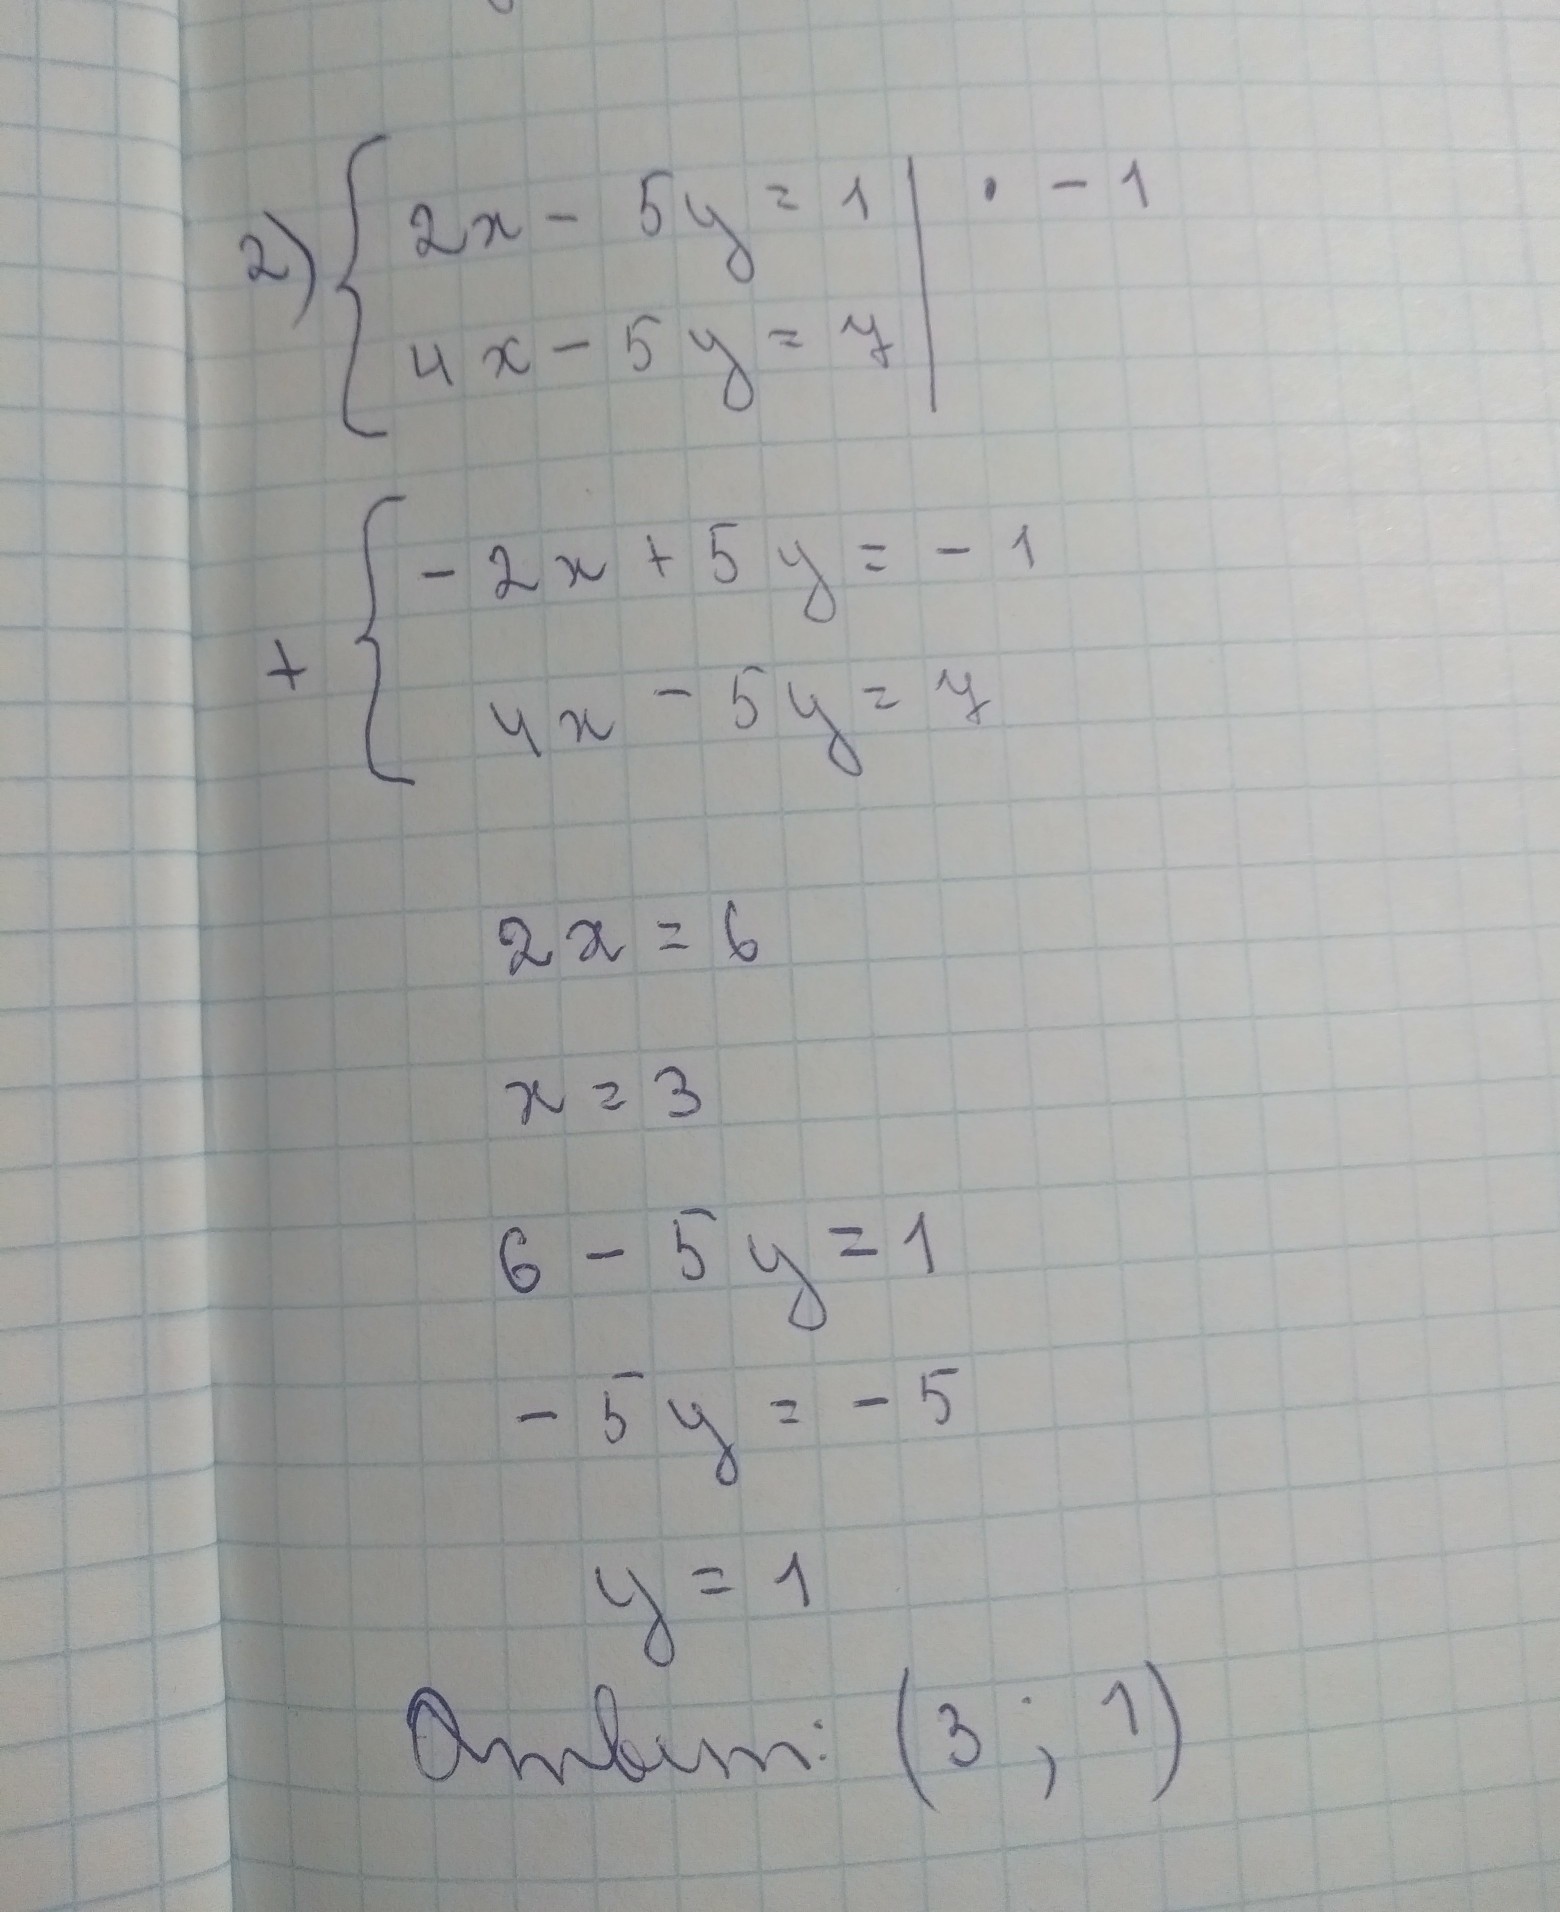 2) { 2x - 5y = 1 | · - 1
4x - 5y = 7
+ { - 2x + 5y = - 1
4x - 5y = 7
2x = 6
x = 3
6 - 5y = 1
- 5y = - 5
y = 1
Ответ: (3 ; 1)